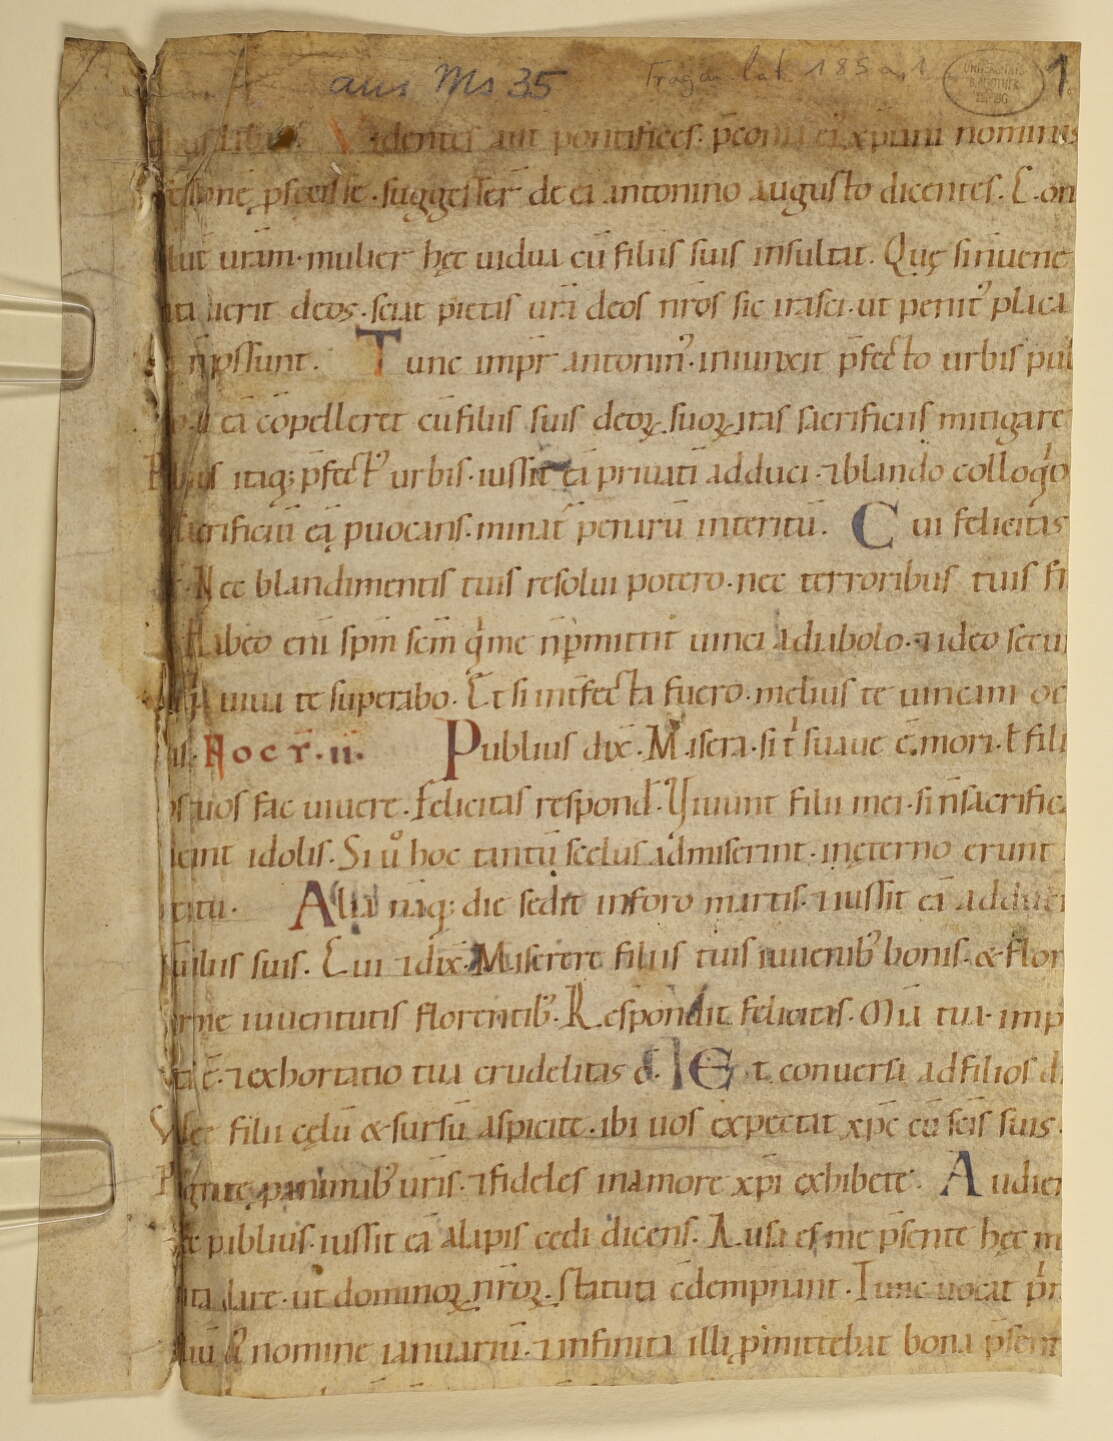 aus Ms 35 Fragm. lat. 185a,1 1
UNIVERSITÄTS BIBLIOTHEK LEIPZIG
Videntes aut̄ pontifices· p̄coniū ei᷒ xp̄iani nominis
p̄fecisse· suggesser̄ de ea antonino augusto dicentes. Con
salut̄ urām· mulier hęc uidua cū filiis suis insultat. Quę si n̄ uene
uerit deos· sciat pietas urā deos nr̄os sic irasci· ut penit᷒ placa
n̄ possunt. Tunc impr̄ antonin᷒· iniunxit p̄fecto urbis pub
eā cōpelleret cū filiis suis deoꝝ suoꝝ iras sacrificiis mitigare
itaq; p̄fect᷒ urbis· iussit eā priuatī adduci· ⁊ blando colloqͥo
sacrificiū eā ꝓuocans· minat᷒ penarū interitū. Cui felicitas
Nec blandimentis tuis resolui potero· nec terroribus tuis fr
Habeo enī sp̄m sc̄m qͥ me n̄ ꝑmittit uinci a diabolo· ⁊ ideo secu
uiua te superabo. Et si int̄fecta fuero· melius te uincam oc
Hoc r̄·ii. Publius dix̄· Misera· si tͥ suaue ē· mori· ł fili
os tuos fac uiuere· Felicitas respond̄· Viuunt filii mei· si n̄ sacrific
idolis· Si ů hoc tantū scelus admiserint· in ęterno erunt
Alia naq; die sedit in foro martis· ⁊ iussit eā adduci
filiis suis. Cui ⁊ dix̄· Miserere filiis tuis iuuenib᷒ bonis· & flor
iuuentutis florentib᷒· Respondit felicitas· Mīa tua· imp
ē· ⁊ exhortatio tua crudelitas ē· Et conuersa ad filios d
filii cęlū & sursū aspicite· ibi uos expectat xp̄c cū sc̄is suis·
ꝓ animab᷒ uris̄· ⁊ fideles in amore xp̄i exhibete· Audien
publius· iussit eā alapis cedi dicens· Ausa es me p̄sente hęc m
ut dominoꝝ nr̄oꝝ statuta c̄dempnant· Tunc uocat pͥ
nomine ianuariū· ⁊ infinita illi ꝓmittebat bona p̄sent